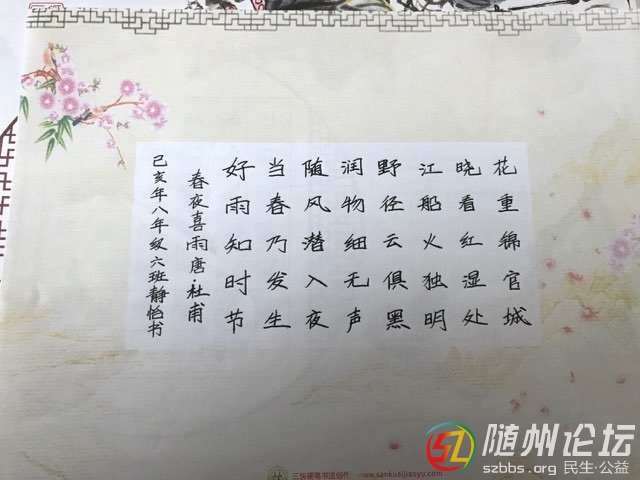 己亥年八年级六班静怡书
春夜喜雨唐杜甫
好雨知时节
当春乃发生
随风潜入夜
润物细无声
野径云俱黑
江船火独明
晓看红湿处
花重锦官城
三快硬笔书法创作 www.sankuaijiaoyu.com
随州论坛
szbbs.org 民生·公益